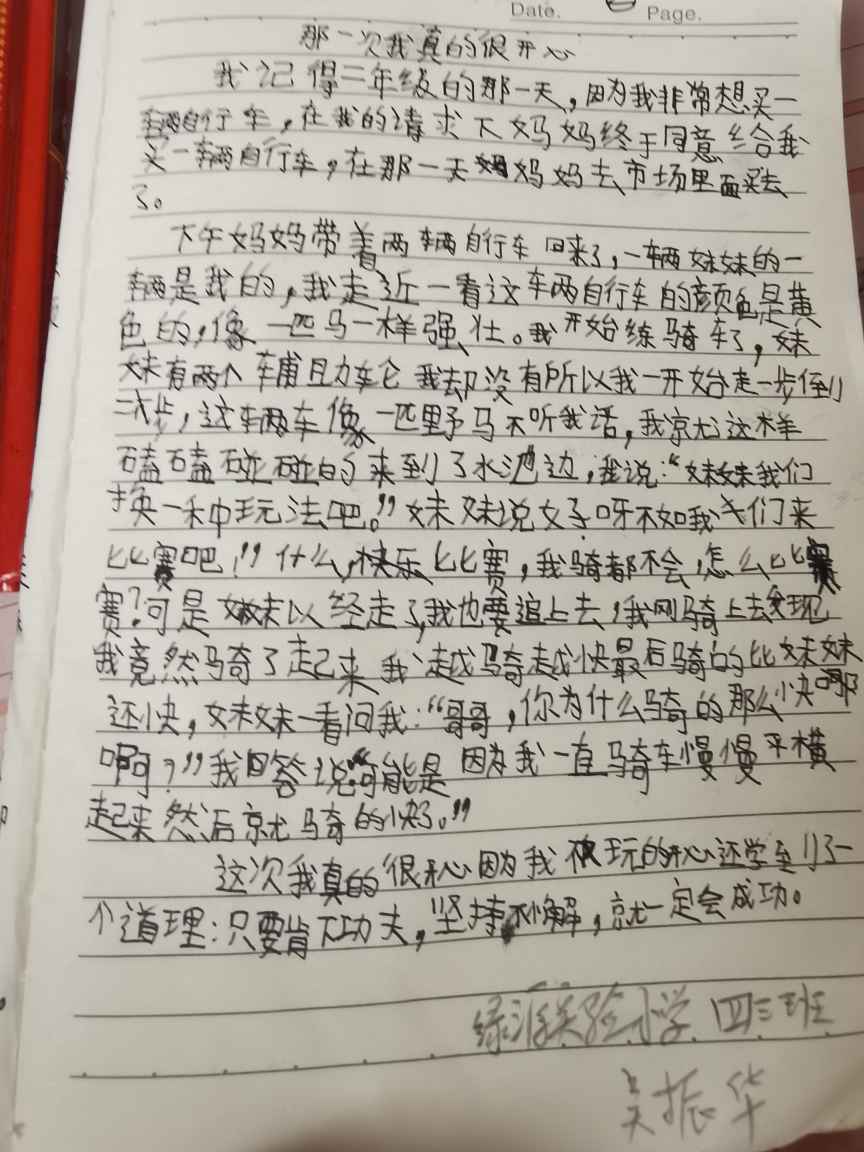 Date. Page.
那一次我真的很开心
我记得二年级的那一天，因为我非常想买一
辆自行车，在我的请求下妈妈终于同意给我
买一辆自行车，在那一天妈妈妈去市场里面买去
了。
下午妈妈带着两辆自行车回来了，一辆妹妹的一
辆是我的，我走近一看这车两自行车的颜色是黄
色的，像一匹马一样强壮。我开始练骑车了，妹
妹有两个辅助轮我却没有所以我一开始走一步倒
二步，这车两车像一匹野马不听我话，我就这样
磕磕碰碰的来到了水池边，我说：“妹妹我们
换一种玩法吧。”妹妹说好呀不如我们来
比赛吧！”什么，快乐比赛，我骑都不会，怎么比赛
赛？可是妹妹以经走了，我也要追上去，我刚骑上去发现
我竟然骑了起来我越骑越快最后骑的比妹妹
还快，妹妹一看问我：“哥哥，你为什么骑的那么快
啊？”我回答说“可能是因为我一直骑车慢慢平横
起来然后就骑的快了。”
这次我真的很开心因为我不仅玩的开心还学到了一
个道理：只要肯下功夫，坚持不懈，就一定会成功。
实验小学 四三班
吴振华